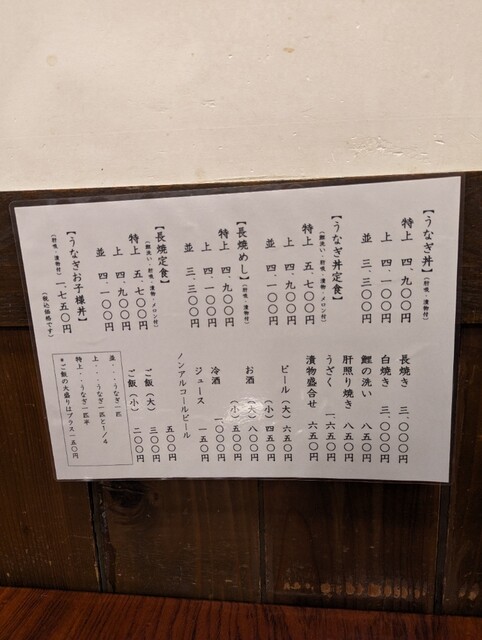 【うなぎ丼】（肝吸・漬物付）
特上　四、九〇〇円
上　四、一〇〇円
並　三、三〇〇円
【うなぎ丼定食】
（鯉洗い・肝吸・漬物・メロン付）
特上　五、七〇〇円
上　四、九〇〇円
並　四、一〇〇円
【長焼めし】（肝吸・漬物付）
特上　四、九〇〇円
上　四、一〇〇円
並　三、三〇〇円
【長焼定食】
（鯉洗い・肝吸・漬物・メロン付）
特上　五、七〇〇円
上　四、九〇〇円
並　四、一〇〇円
【うなぎお子様丼】
（肝吸・漬物付）　一、七五〇円
（税込価格です）
長焼き　三、〇〇〇円
白焼き　三、〇〇〇円
鯉の洗い　八五〇円
肝照り焼き　八五〇円
うざく　一、六五〇円
漬物盛合せ　六五〇円
ビール（大）六五〇円
（小）四五〇円
お酒（大）八〇〇円
（小）五〇〇円
冷酒　一、〇〇〇円
ジュース　一五〇円
ノンアルコールビール
五〇〇円
ご飯（大）　三〇〇円
ご飯（小）　二〇〇円
並・・・うなぎ一匹
上・・・うなぎ一匹と１/４
特上・・・うなぎ一匹半
＊ご飯の大盛りはプラス一五〇円